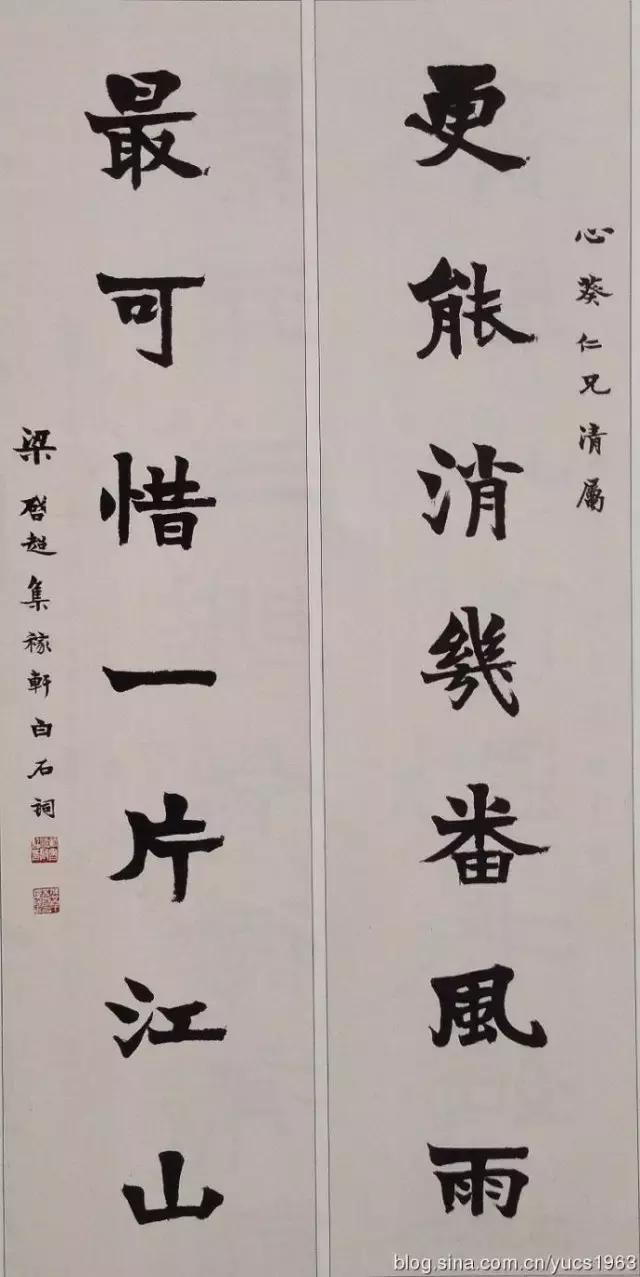 心葵仁兄清属
更能消幾番風雨
最可惜一片江山
梁啓超集稼軒白石詞
blog.sina.com.cn/yucs1963